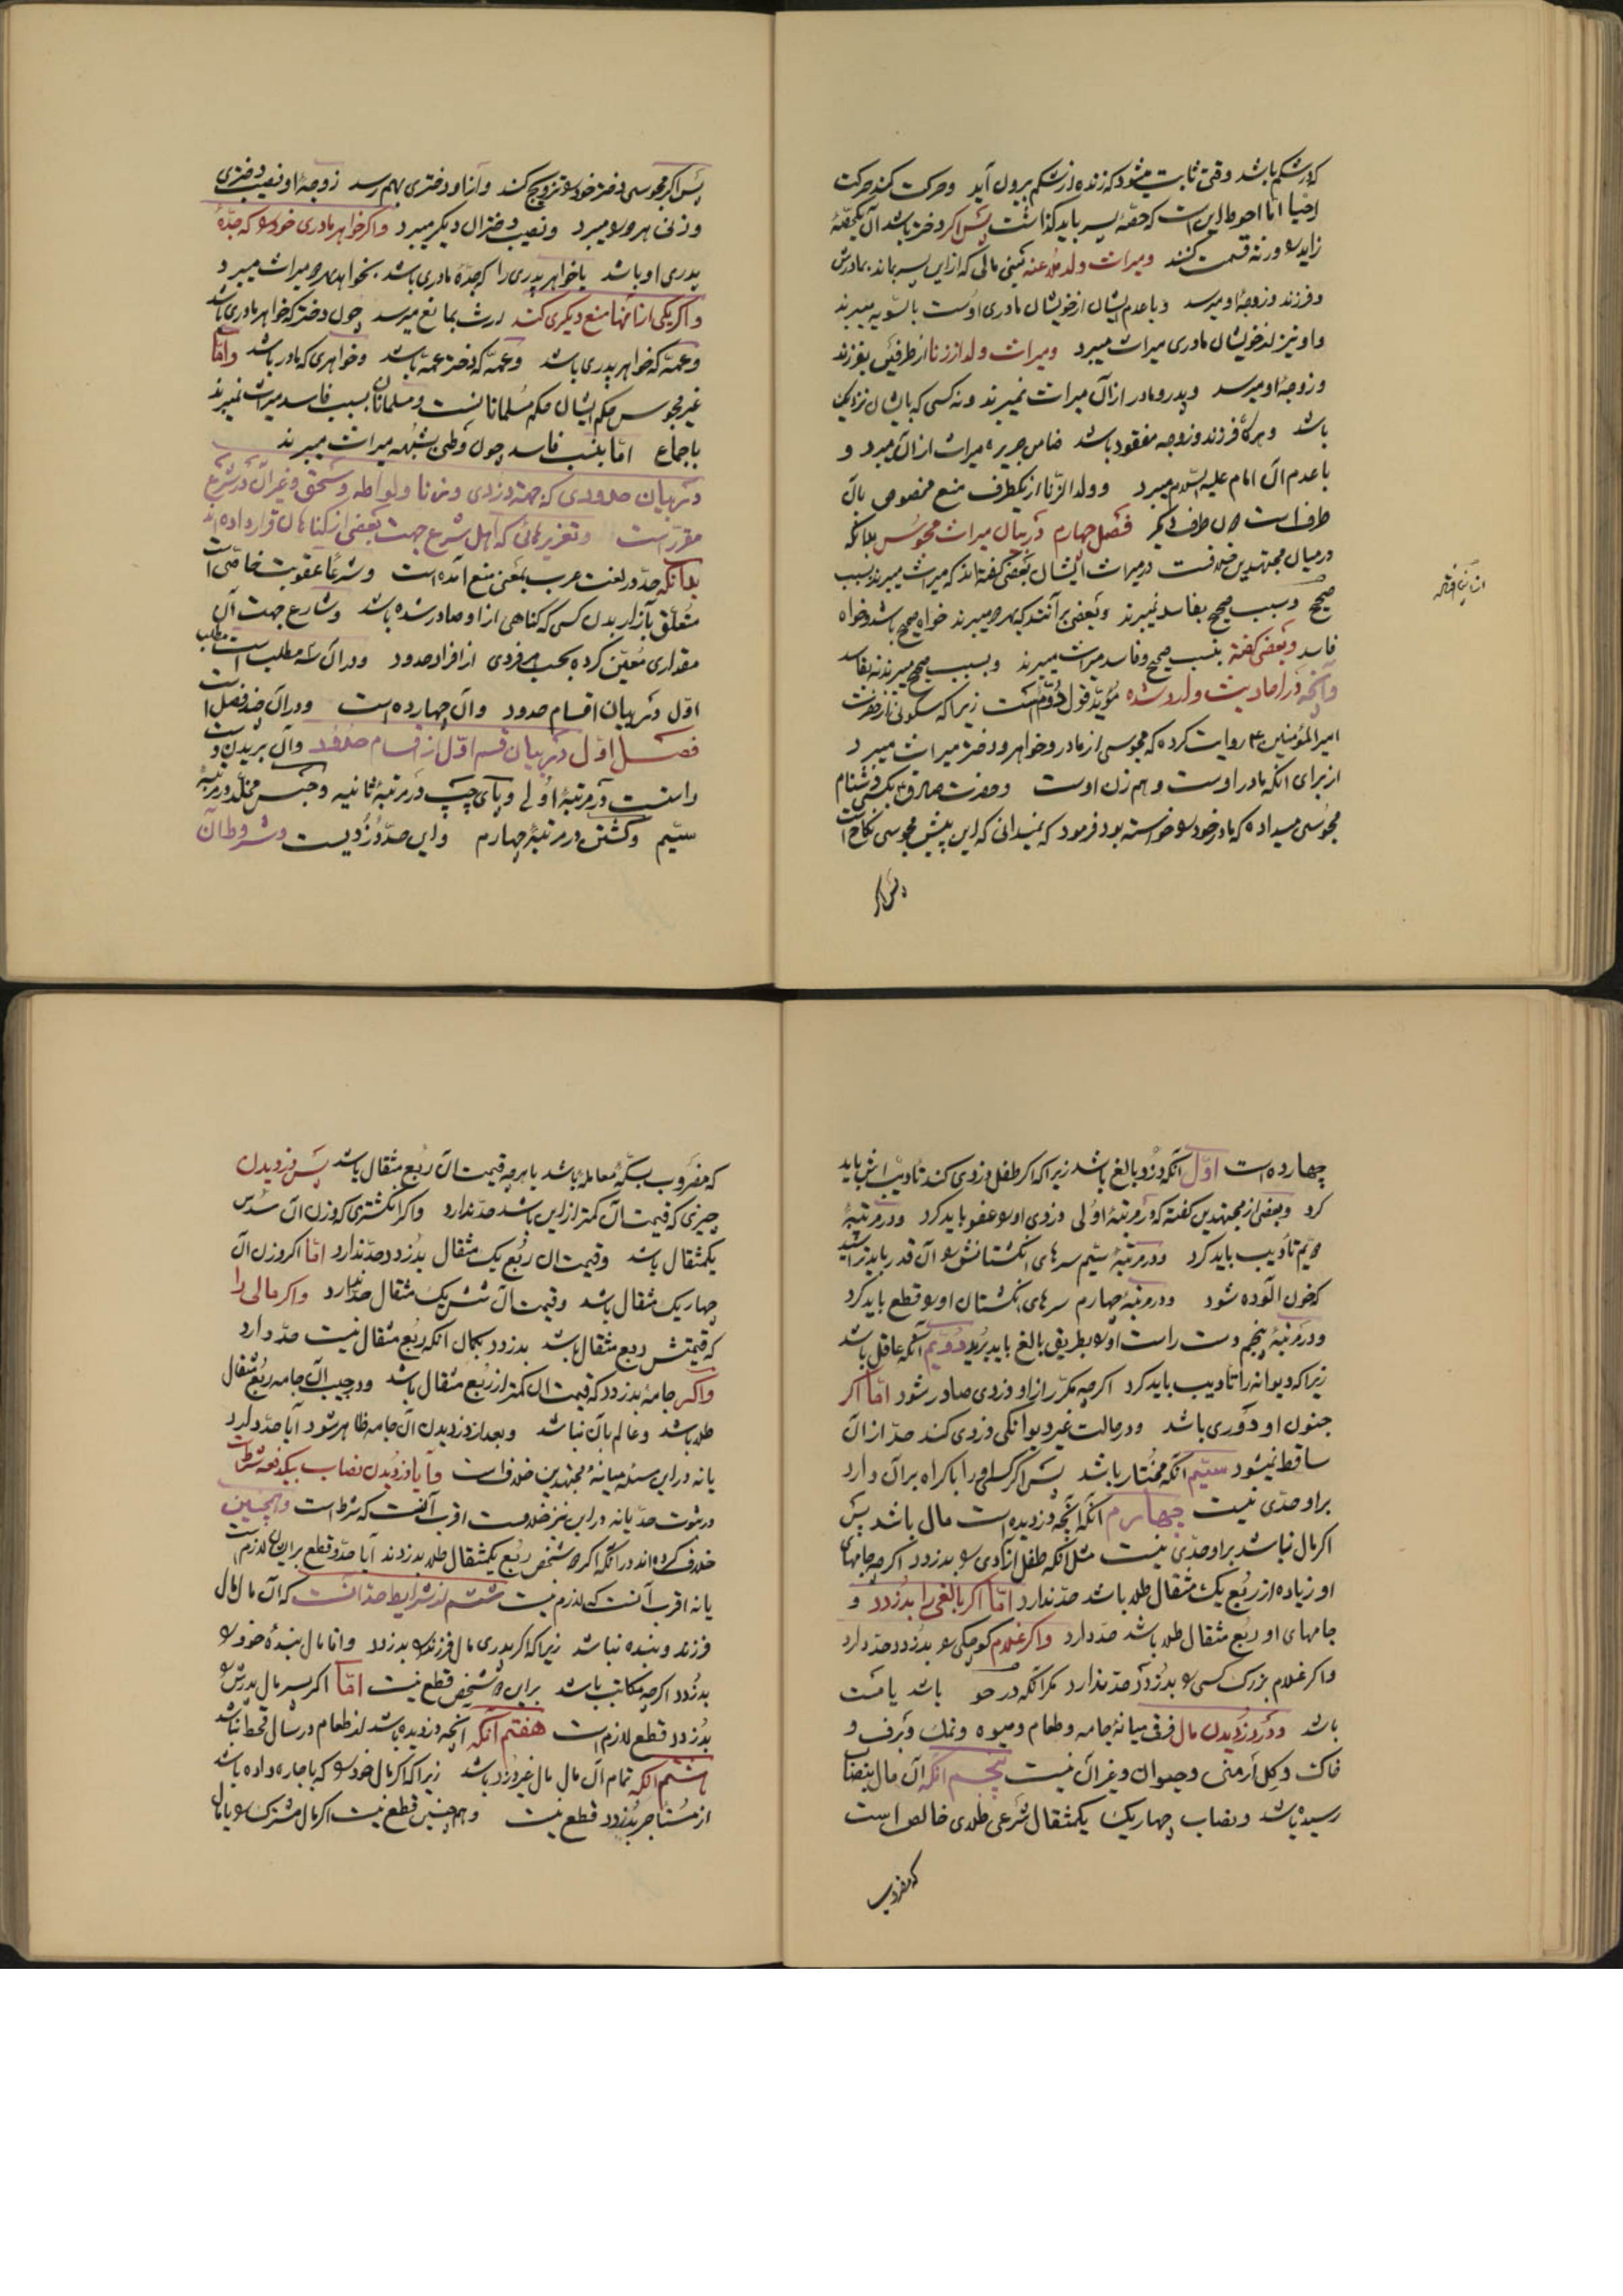 که در شکم باشد وقتی ثابت میشود که زنده از شکم بیرون آید و حرکت کند حرکت
احیا امّا احوط این است که حصّهٔ پسر باید گذاشت پس اگر دختر باشد آن یکحصّهٔ
زاید بورثه قسمت کنند و میراث ولد ملاعنه یعنی مالی که از این پسر بماند بمادرش
و فرزند و زوجهٔ او میرسد و با عدم ایشان از خویشان مادری اوست بالسّویه میبرند
و او نیز از خویشان مادری میراث میبرد و میراث ولد از زنا از طرفین بفرزند
و زوجهٔ او میرسد و پدر و مادر از آن میراث نمیبرند و نه کسی که بایشان نزدیک
باشد و هرگاه فرزند و زوجه مفقود باشد ضامن جریره میراث از آن میبرد و
با عدم آن امام علیه السّلام میبرد و ولد الزّنا از یکطرف منع مخصوص بآن
طرف است نه آن طرف دیگر فصل چهارم در بیان میراث مجوس بدانکه
در میان مجتهدین خلافست در میراث ایشان بعضی گفته‌اند که میراث میبرند بسبب
صحیح و نسب صحیح بفاسد نمیبرند و بعضی برآنند که بهر دو میبرند خواه صحیح باشد و خواه
فاسد و بعضی گفته بنسب صحیح و فاسد میراث میبرند و بسبب صحیح میبرند نه بفاسد
و آنچه در احادیث وارد شده مؤید قول دوّم است زیرا که سکونی از حضرت
امیر المؤمنین ع روایت کرده که مجوسی از مادر و خواهر و دختر میراث میبرد
از برای آنکه مادر اوست و هم زن اوست و حضرت صادق ع بکسی که دشنام
مجوسی میداده که مادر خود را خواسته بود فرمود که نمیدانی که این پیش مجوسی نکاح است
پس اگر
پس اگر مجوسی دختر خود را تزویج کند و از او دختری بهم رسد زوجهٔ او نصیب دختری
و زنی هر دو را میبرد و نصیب دختران دیگر میبرد و اگر خواهر مادری خود را که جدّهٔ
پدری او باشد یا خواهر پدری را که جدّهٔ مادری باشد بخواهد هر دو میراث میبرد
و اگر یکی از آنها منع دیگری کند ارث بمانع میرسد چون دختر که خواهر مادری باشد
و عمّه که خواهر پدری باشد و عمّه که دختر عمّه باشد و خواهری که مادر باشد و امّا
غیر مجوس حکم ایشان حکم مسلمانانست و مسلمانان بسبب فاسد میراث نمیبرند
باجماع امّا بنسب فاسد چون وطی بشبهه میراث میبرند
در بیان حدودی که جهت دزدی و زنا و لواطه و سحق و غیر آن در شرع
مقرّر است و تعزیرهائی که اهل شرع جهت بعضی از گناهان قرار داده‌اند
بدانکه حدّ در لغت عرب بمعنی منع آمده است و شرعًا عقوبت خاصّی است
متعلّق بآزار بدن کسی که گناهی از او صادر شده باشد و شارع جهت آن
مقداری معیّن کرده بحسب هر فردی از افراد حدود و در آن سه مطلب است مطلب
اوّل در بیان اقسام حدود و آن چهارده است و در آن چند فصل است
فصل اوّل در بیان قسم اوّل از اقسام حدود و آن بریدن دست
راست در مرتبهٔ اولی و پای چپ در مرتبهٔ ثانیه و حبس مخلّد در مرتبهٔ
سیّم و کشتن در مرتبهٔ چهارم و این حدّ دزدیست و شروط آن
چهارده است اوّل آنکه دزد بالغ باشد زیرا که اگر طفل دزدی کند تأدیب اش باید
کرد و بعضی از مجتهدین گفته که در مرتبهٔ اولی دزدی او را عفو باید کرد و در مرتبهٔ
دویّم تأدیب باید کرد و در مرتبهٔ سیّم سرهای انگشتانش را آن قدر باید تراشید
که خون آلوده شود و در مرتبهٔ چهارم سرهای انگشتان او را قطع باید کرد
و در مرتبهٔ پنجم دست راست او را بطریق بالغ باید برید دویّم آنکه عاقل باشد
زیرا که دیوانه را تأدیب باید کرد اگرچه مکرّر از او دزدی صادر شود امّا اگر
جنون او دَوری باشد و در حالت غیر دیوانگی دزدی کند حدّ از آن
ساقط نمیشود سیّم آنکه مختار باشد پس اگر کسی او را باکراه بر آن دارد
بر او حدّی نیست چهارم آنکه آنچه دزدیده است مال باشد پس
اگر مال نباشد بر او حدّی نیست مثل آنکه طفل آزادی را بدزدد اگرچه جامهای
او زیاده از ربع یک مثقال طلا باشد حدّ ندارد امّا اگر بالغی را بدزدد و
جامهای او ربع مثقال طلا باشد حدّ دارد و اگر غلام کوچکی را بدزدد حدّ دارد
و اگر غلام بزرگ کسی را بدزدد حدّ ندارد مگر آنکه در خو باشد یا مست
باشد و در دزدیدن مال فرق میانهٔ جامه و طعام و میوه و نمک و برف و
خاک و گل ارمنی و حیوان و غیر آن نیست پنجم آنکه آن مال بنصاب
رسیده باشد و نصاب چهار یک یکمثقال شرعی طلای خالص است
که مضروب
که مضروب بسکّهٔ معامله باشد یا هرچه قیمت آن ربع مثقال باشد پس دزدیدن
چیزی که قیمت آن کمتر از این باشد حدّ ندارد و اگر انگشتری که وزن آن سدس
یکمثقال باشد و قیمت آن ربع یک مثقال بدزدد حدّ ندارد امّا اگر وزن آن
چهار یک مثقال باشد و قیمت آن شش یک مثقال حدّ ندارد و اگر مالی را
که قیمتش ربع مثقال باشد بدزدد بگمان آنکه ربع مثقال نیست حدّ دارد
و اگر جامهٔ بدزدد که قیمت آن کمتر از ربع مثقال باشد و در جیب آن جامه ربع مثقال
طلا باشد و عالم بآن نباشد و بعد از دزدیدن آن جامه ظاهر شود آیا حدّ دارد
یا نه در این مسئله میانهٔ مجتهدین خلاف است و آیا دزدیدن نصاب بیکدفعه شرط است
در ثبوت حدّ یا نه در این نیز خلافست اقرب آنست که شرط است و همچنین
خلاف کرده‌اند در آنکه اگر دو شخص ربع یکمثقال طلا بدزدند آیا حدّ و قطع بر ایشان لازم است
یا نه اقرب آنست که لازم نیست ششم از شرایط حدّ آنست که آن مال مال
فرزند و بنده نباشد زیرا که اگر پدری مال فرزند را بدزدد و آقا مال بندهٔ خود را
بدزدد اگرچه مکاتب باشد بر این دو شخص قطع نیست امّا اگر پسر مال پدرش را
بدزدد قطع لازم است هفتم آنکه آنچه دزدیده باشد از طعام در سال قحط نباشد
هشتم آنکه تمام آن مال مال غیر دزد باشد زیرا که اگر مال خود را که باجاره داده باشد
از مستأجر بدزدد قطع نیست و همچنین قطع نیست اگر مال مشترک را یا مال